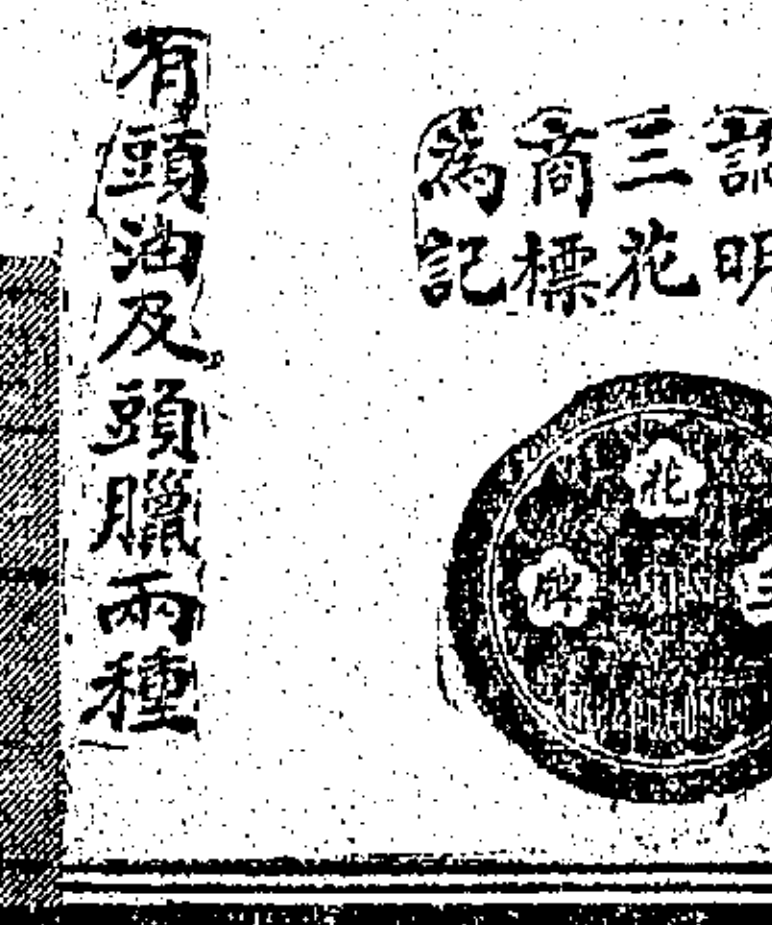 認明
三花
商標
為記
三花牌
有頭油及頭臘兩種